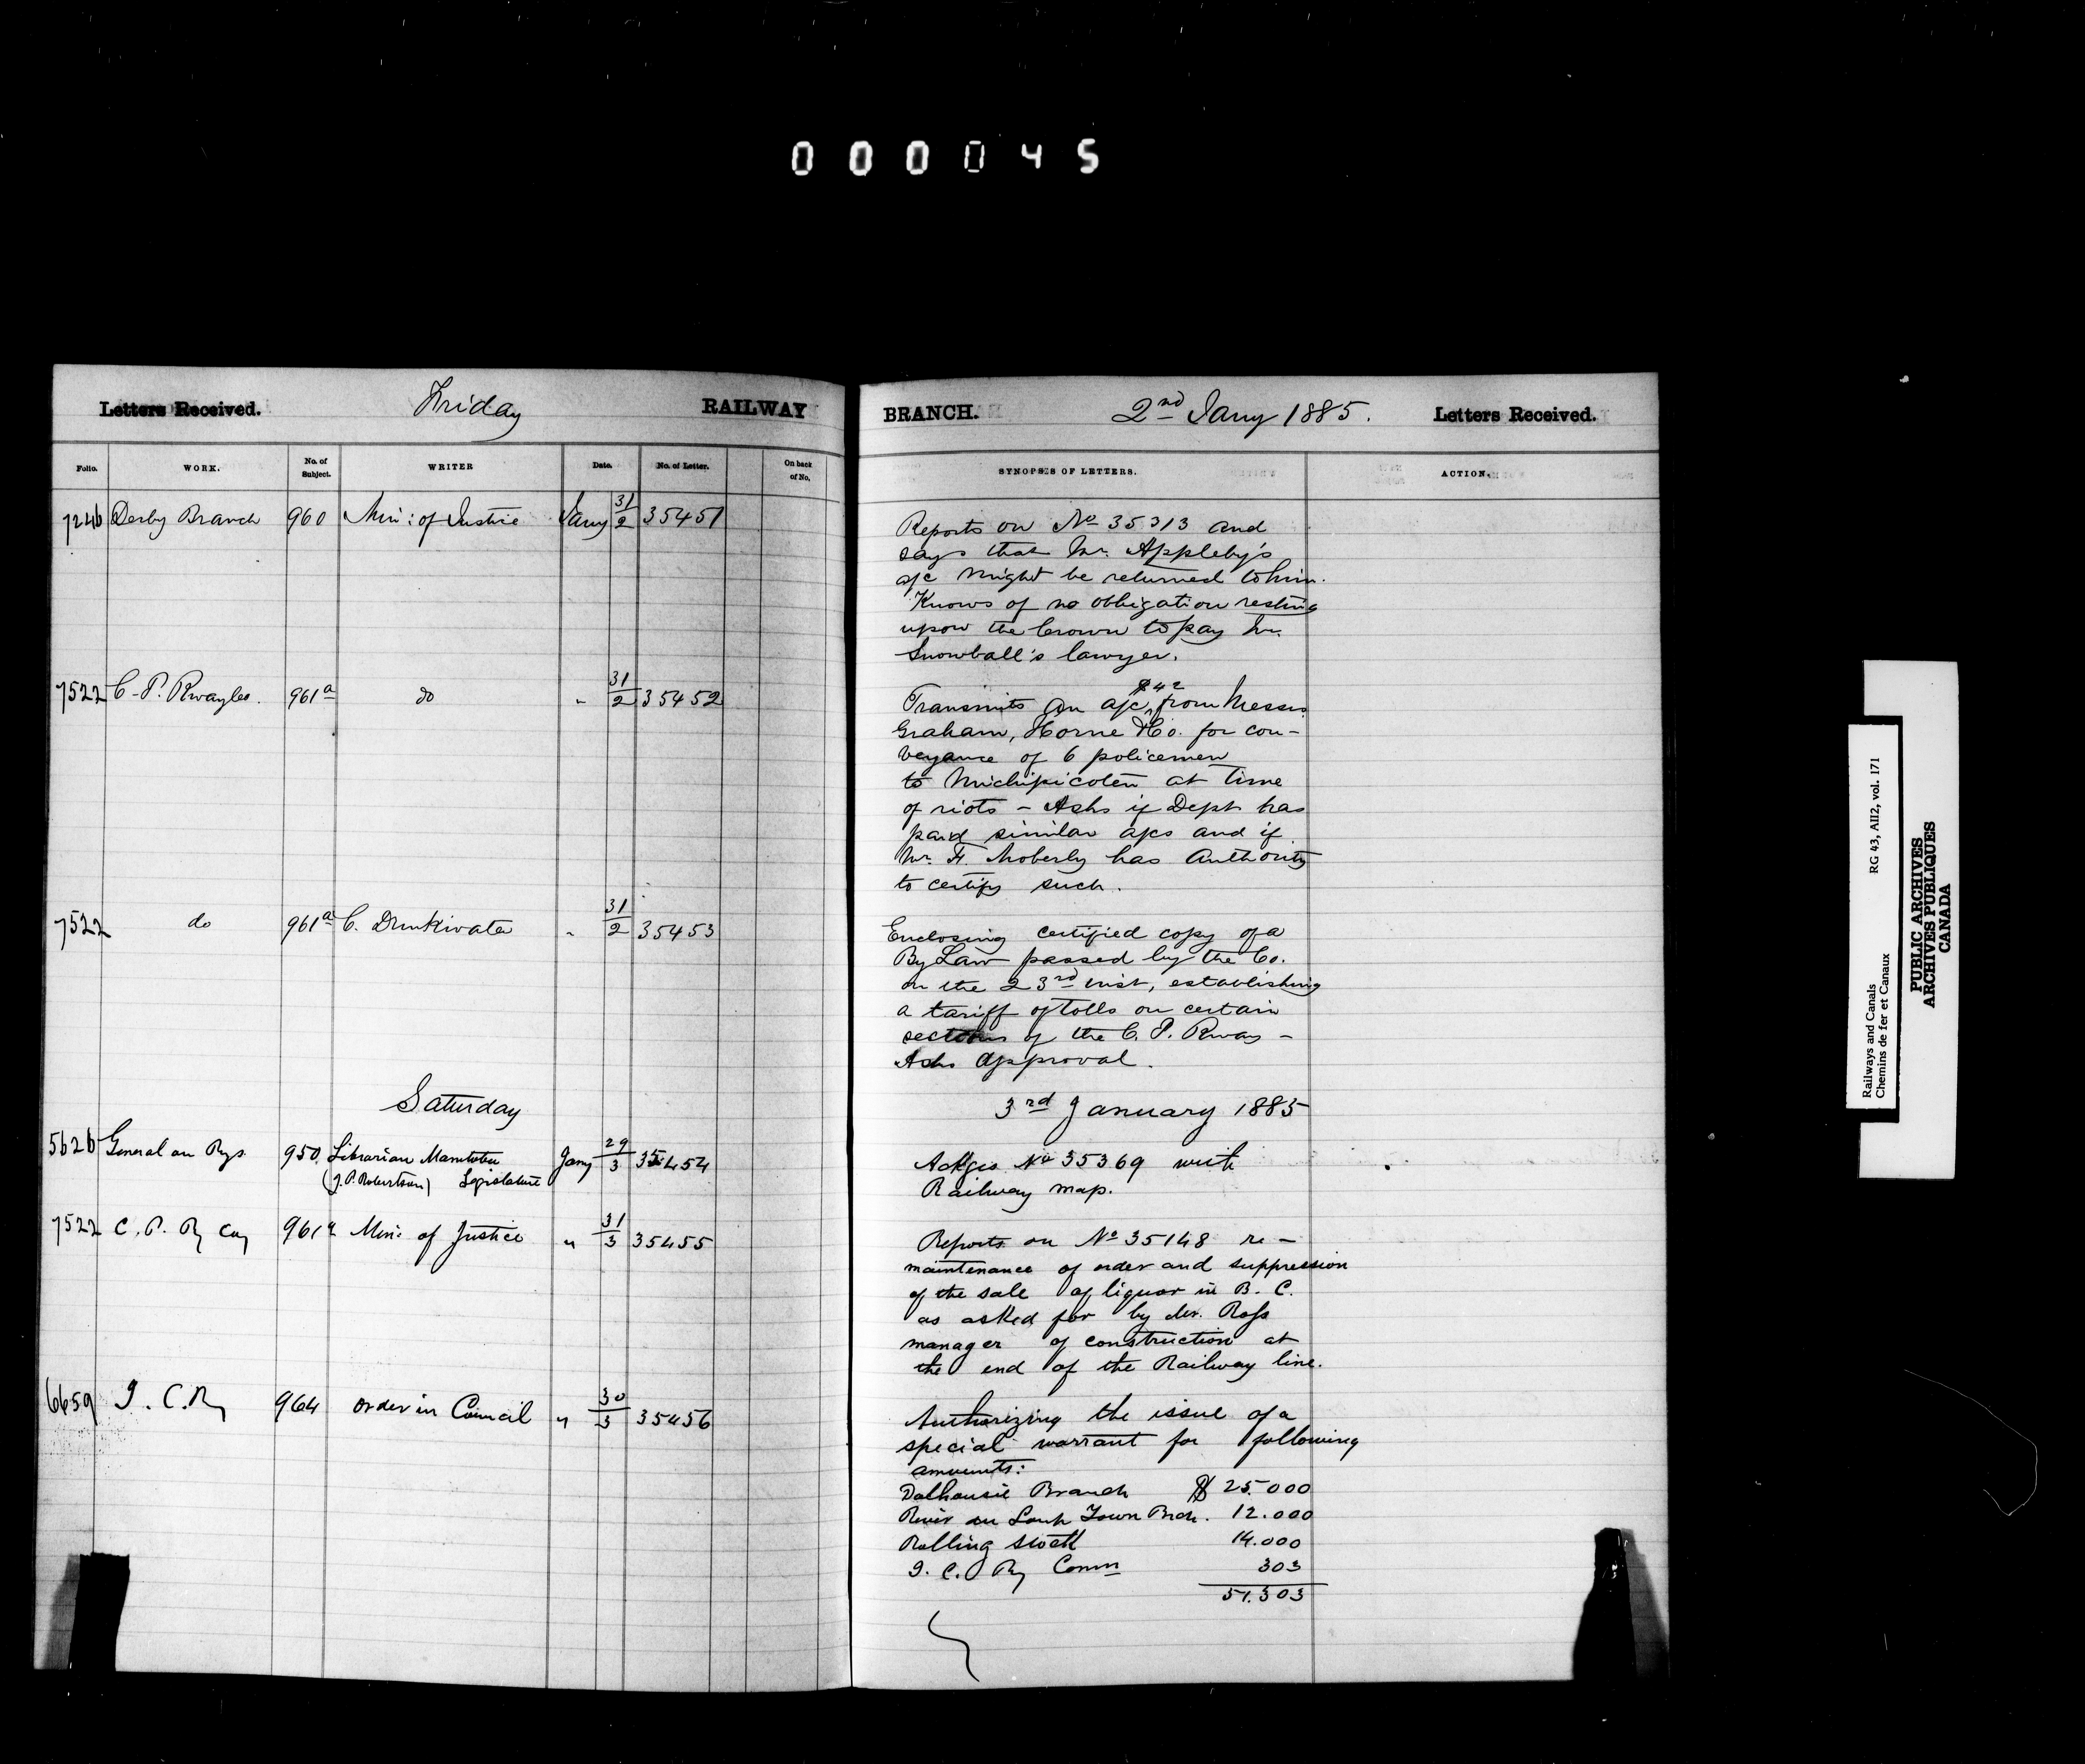 000045
Letters Received. Friday RAILWAY BRANCH. 2nd Jany 1885. Letters Received.
Folio. WORK. No. of Subject. WRITER Date. No. of Letter. On back of No. SYNOPSIS OF LETTERS. ACTION.
7246 Derby Branch 960 Min: of Justice Jany 31/2 35451
Reports on No 35313 and
says that Mr. Appleby's
a/c might be returned to him.
Knows of no obligation resting
upon the Crown to pay Mr.
Snowball's lawyer.
7522 C. P. Rway 961a do " 31/2 35452
Transmits an a/c $42 from Messrs
Graham, Horne & Co. for con-
veyance of 6 policemen
to Michipicoten at time
of riots - Asks if Dept has
paid similar a/cs and if
Mr. F. Moberly has Authority
to certify such.
7522 do 961a C. Drinkwater " 31/2 35453
Enclosing certified copy of a
By Law passed by the Co.
on the 23rd inst, establishing
a tariff of tolls on certain
sections of the C. P. Rway -
Asks approval.
Saturday 3rd January 1885
5626 General on Rys 950. Librarian Manitoba Jany 29/3 35454
(J. P. Robertson) Legislature
Ackges No 35369 with
Railway map.
7522 C. P. Ry Coy 961a Min: of Justice " 31/3 35455
Reports on No 35148 re -
maintenance of order and suppression
of the sale of liquor in B. C.
as asked for by Mr. Ross
manager of construction at
the end of the Railway line.
6659 I. C. Ry 964 order in Council " 30/3 35456
Authorizing the issue of a
special warrant for following
amounts:
Dalhousie Branch $ 25.000
River du Loup Town Brch. 12.000
Rolling stock 14.000
I. C. Ry Comn 303
51.303
Railways and Canals RG 43, AII2, vol. 171
Chemins de fer et Canaux
PUBLIC ARCHIVES
ARCHIVES PUBLIQUES
CANADA